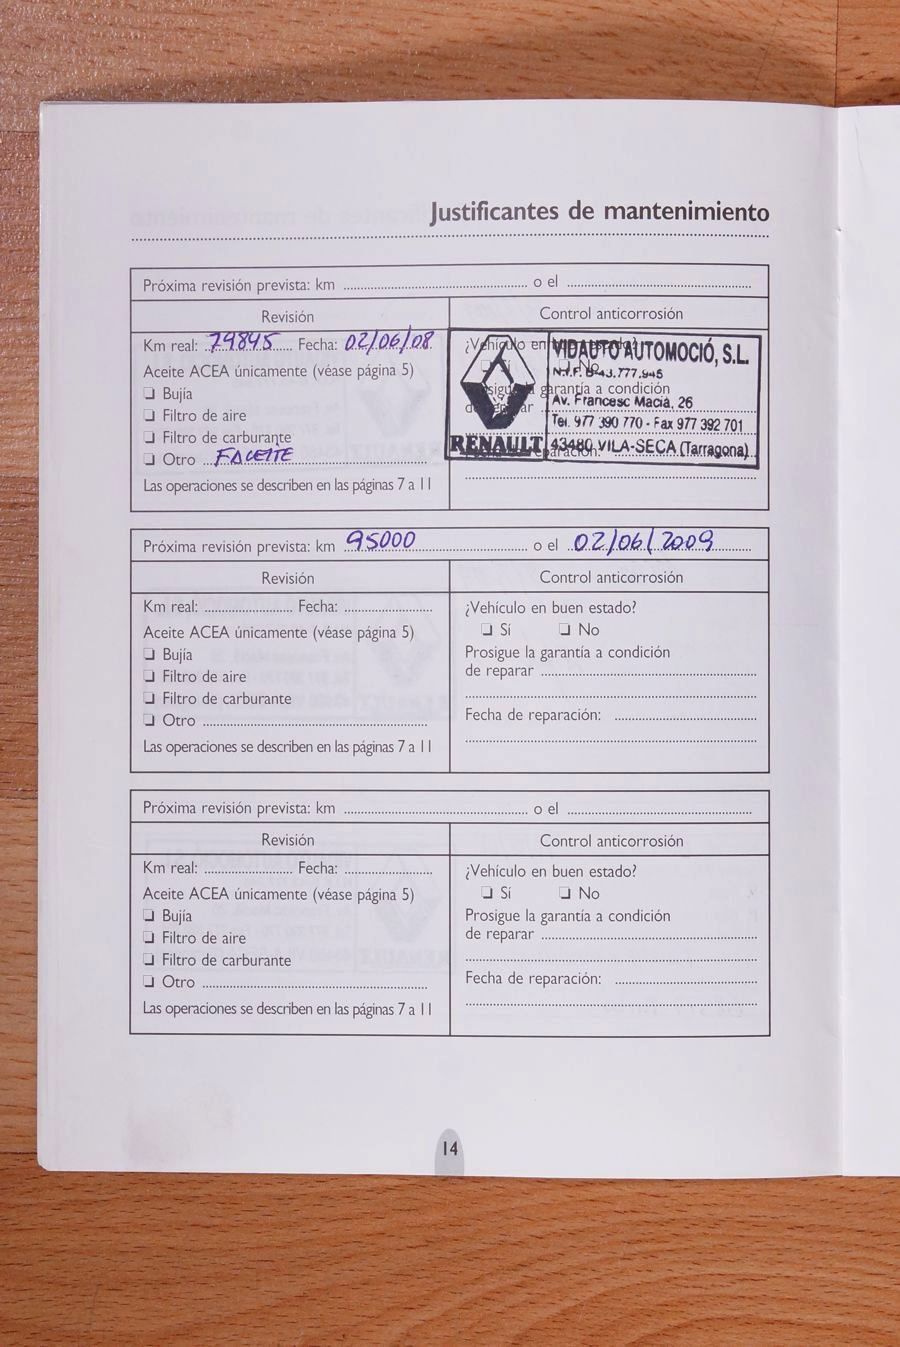 Justificantes de mantenimiento
Próxima revisión prevista: km ........ o el ........
Revisión
Control anticorrosión
Km real: 79845 Fecha: 02/06/08
Aceite ACEA únicamente (véase página 5)
❏ Bujía
❏ Filtro de aire
❏ Filtro de carburante
❏ Otro F ACEITE
Las operaciones se describen en las páginas 7 a 11
¿Vehículo en buen estado?
❏ Sí ❏ No
Prosigue la garantía a condición
de reparar
reparación:
RENAULT
VIDAUTO AUTOMOCIÓ, S.L.
N.I.F. B-43.777.945
Av. Francesc Macià, 26
Tel. 977 390 770 - Fax 977 392 701
43480 VILA-SECA (Tarragona)
Próxima revisión prevista: km 95000 o el 02/06/2009
Revisión
Control anticorrosión
Km real: ........ Fecha: ........
Aceite ACEA únicamente (véase página 5)
❏ Bujía
❏ Filtro de aire
❏ Filtro de carburante
❏ Otro ........
Las operaciones se describen en las páginas 7 a 11
¿Vehículo en buen estado?
❏ Sí ❏ No
Prosigue la garantía a condición
de reparar ........
Fecha de reparación: ........
Próxima revisión prevista: km ........ o el ........
Revisión
Control anticorrosión
Km real: ........ Fecha: ........
Aceite ACEA únicamente (véase página 5)
❏ Bujía
❏ Filtro de aire
❏ Filtro de carburante
❏ Otro ........
Las operaciones se describen en las páginas 7 a 11
¿Vehículo en buen estado?
❏ Sí ❏ No
Prosigue la garantía a condición
de reparar ........
Fecha de reparación: ........
14